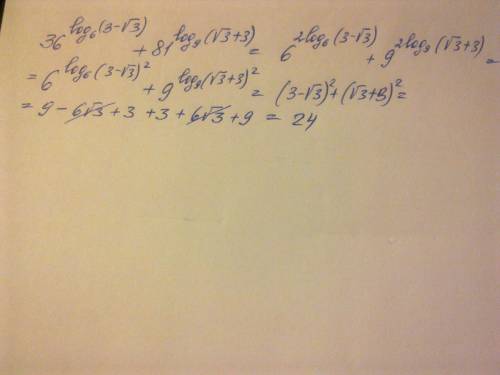 36^{log₆(3-√3)} + 81^{log₉(√3+3)} = 6^{2log₆(3-√3)} + 9^{2log₉(√3+3)} =
= 6^{log₆(3-√3)²} + 9^{log₉(√3+3)²} = (3-√3)² + (√3+3)² =
= 9 - 6√3 + 3 + 3 + 6√3 + 9 = 24